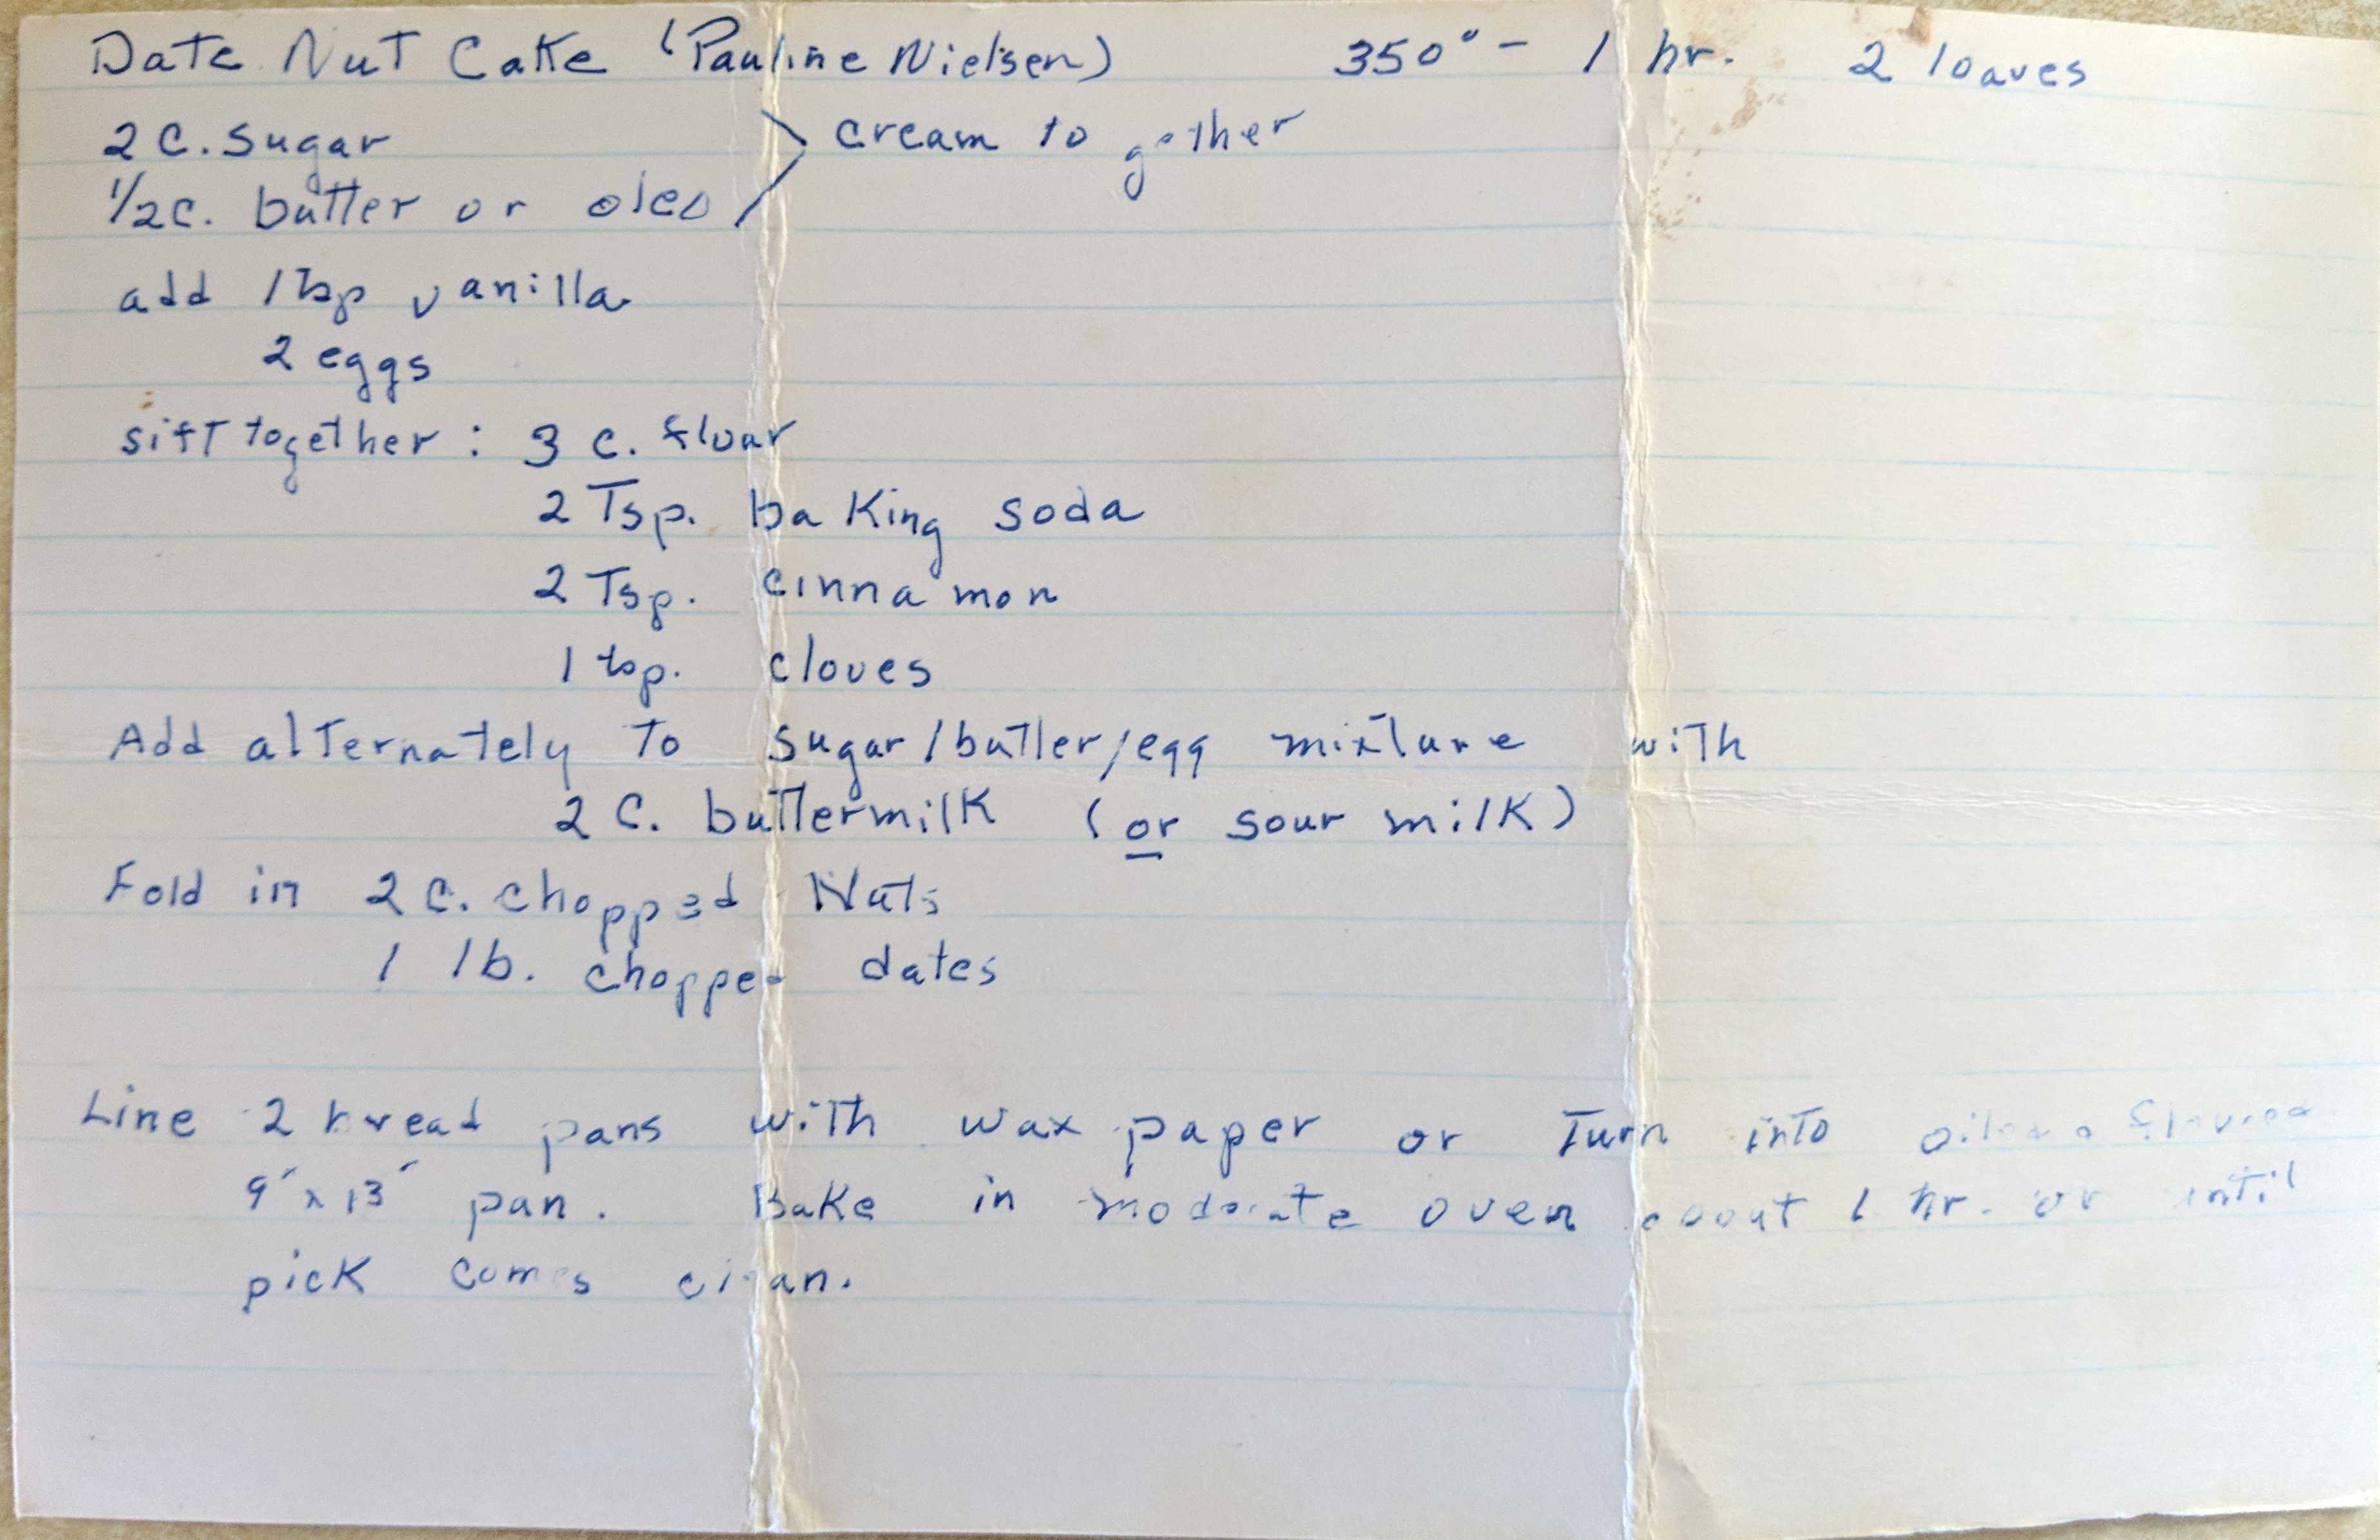 Date Nut Cake (Pauline Nielsen) 350° - 1 hr. 2 loaves
2 C. sugar
1/2 c. butter or oleo > cream to gether
add 1 tsp vanilla
2 eggs
sift together : 3 c. flour
2 Tsp. baking soda
2 Tsp. cinnamon
1 tsp. cloves
Add alternately to sugar/butter/egg mixture with
2 C. buttermilk (or sour milk)
Fold in 2 C. chopped Nuts
1 lb. chopped dates
Line 2 bread pans with wax paper or turn into floured
9" x 13" pan. Bake in moderate oven about 1 hr. or until
pick comes clean.